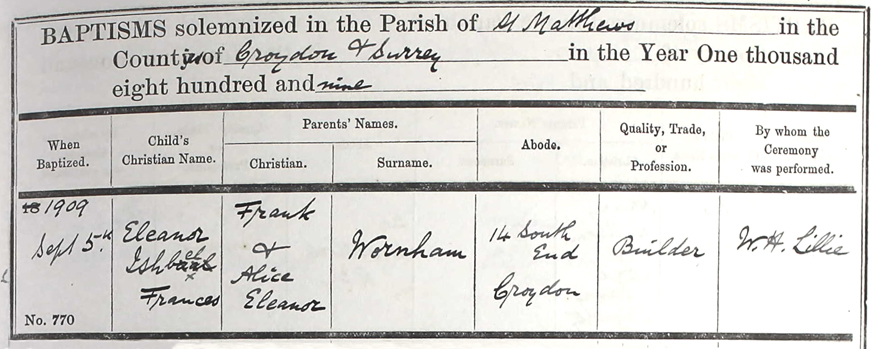 BAPTISMS solemnized in the Parish of St Matthews in the
Counties of Croydon & Surrey in the Year One thousand
eight hundred and nine
When Baptized.
Child's Christian Name.
Parents' Names.
Christian.
Surname.
Abode.
Quality, Trade, or Profession.
By whom the Ceremony was performed.
18 1909
Sept 5th
No. 770
Eleanor
Ishbel
Frances
Frank
&
Alice
Eleanor
Wornham
14 South
End
Croydon
Builder
W. H. Lillie